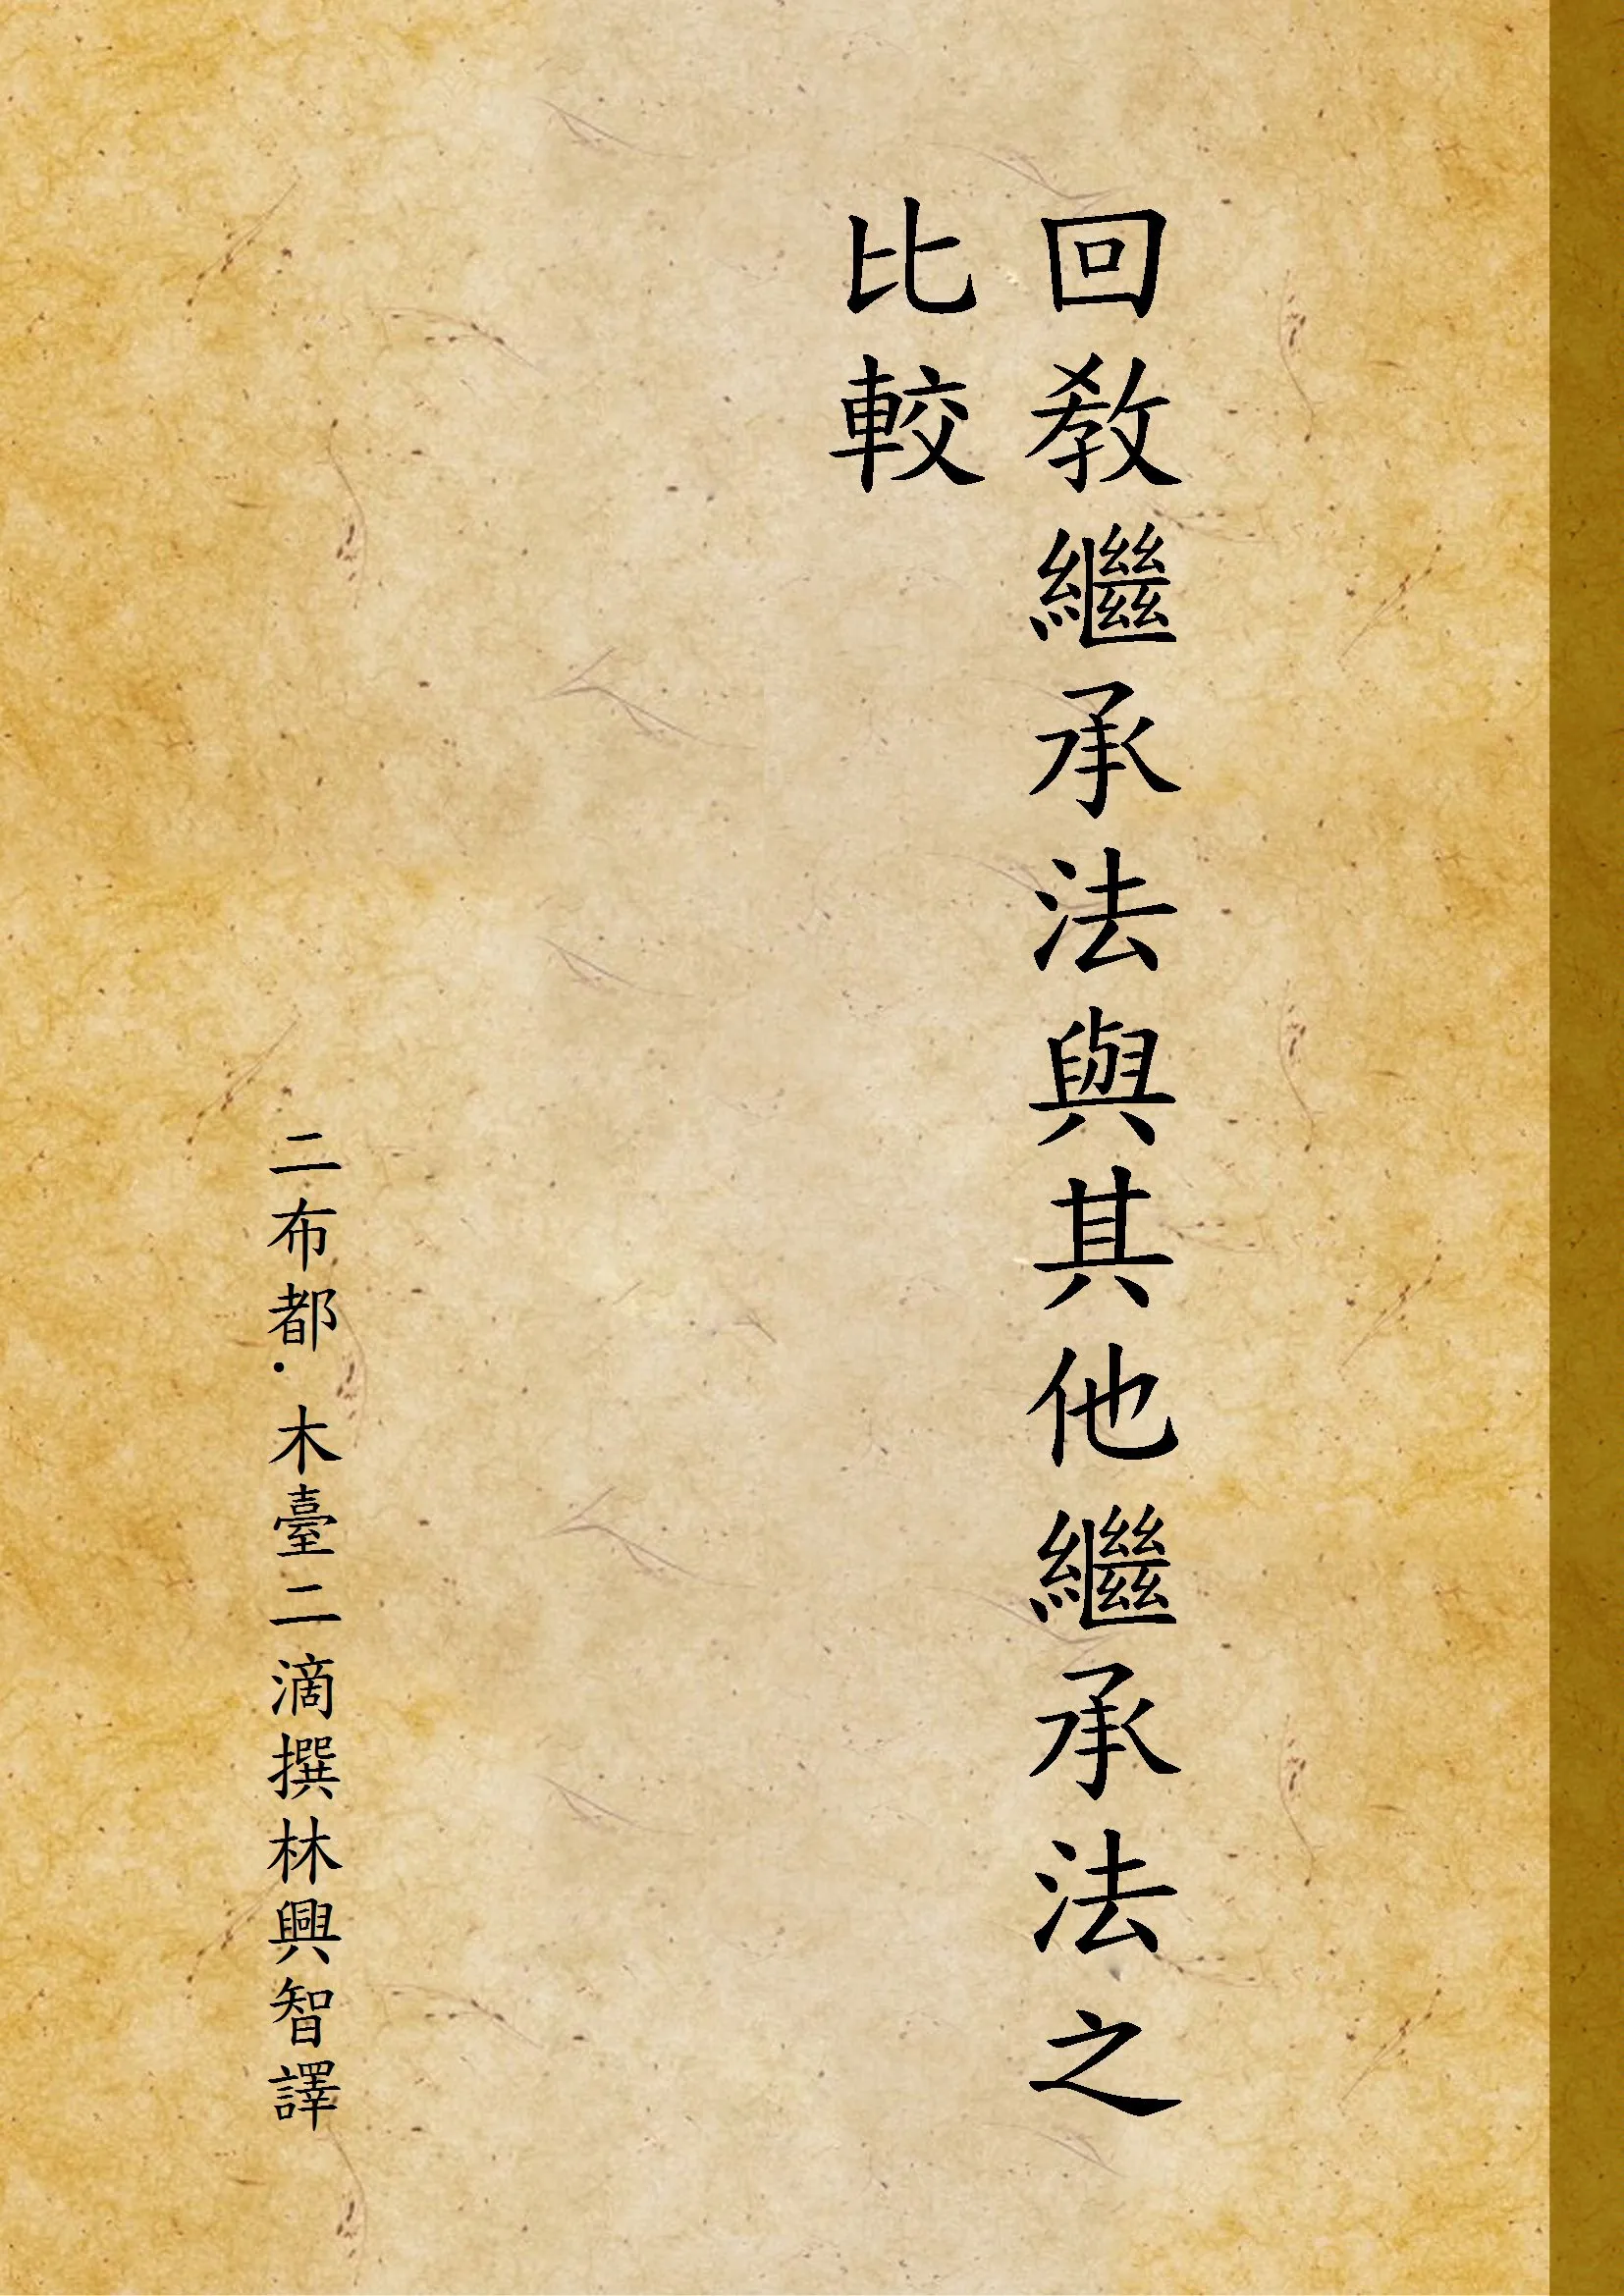 回教繼承法與其他繼承法之
比較
二布都·木臺二滴撰林興智譯